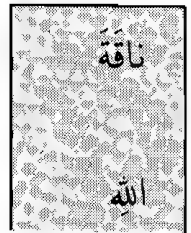 ناقَةَ
اللَّهِ